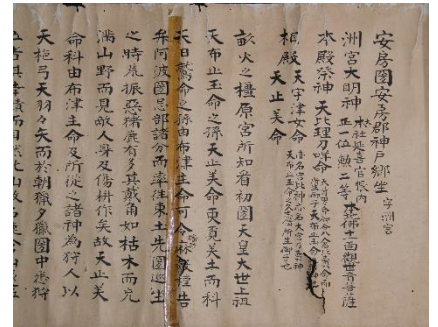 安房國安房郡神戸郷坐 字洲宮
洲宮大明神 本社延喜官帳内 正一位勲二等 本地佛十一面觀世音菩薩
本殿祭神 天比理刀咩命
相殿 天宇津女命
天止美命
畝火之橿原宮所知看初國天皇大世上祖
天布止玉命之孫天止美命更覓美土而科
天日鷲命之孫由布津主命可令殖告
弃阿波國忌部諸分而率往東土先國巡坐
之時荒振惡猪鹿有多其戴角如枯木而充
滿山野而見敵人毎及傷耕作矣故天止美
命科由布津主命及所從之諸神為狩人以
天梔弓天羽々矢而於朝獦夕獦國中悉狩